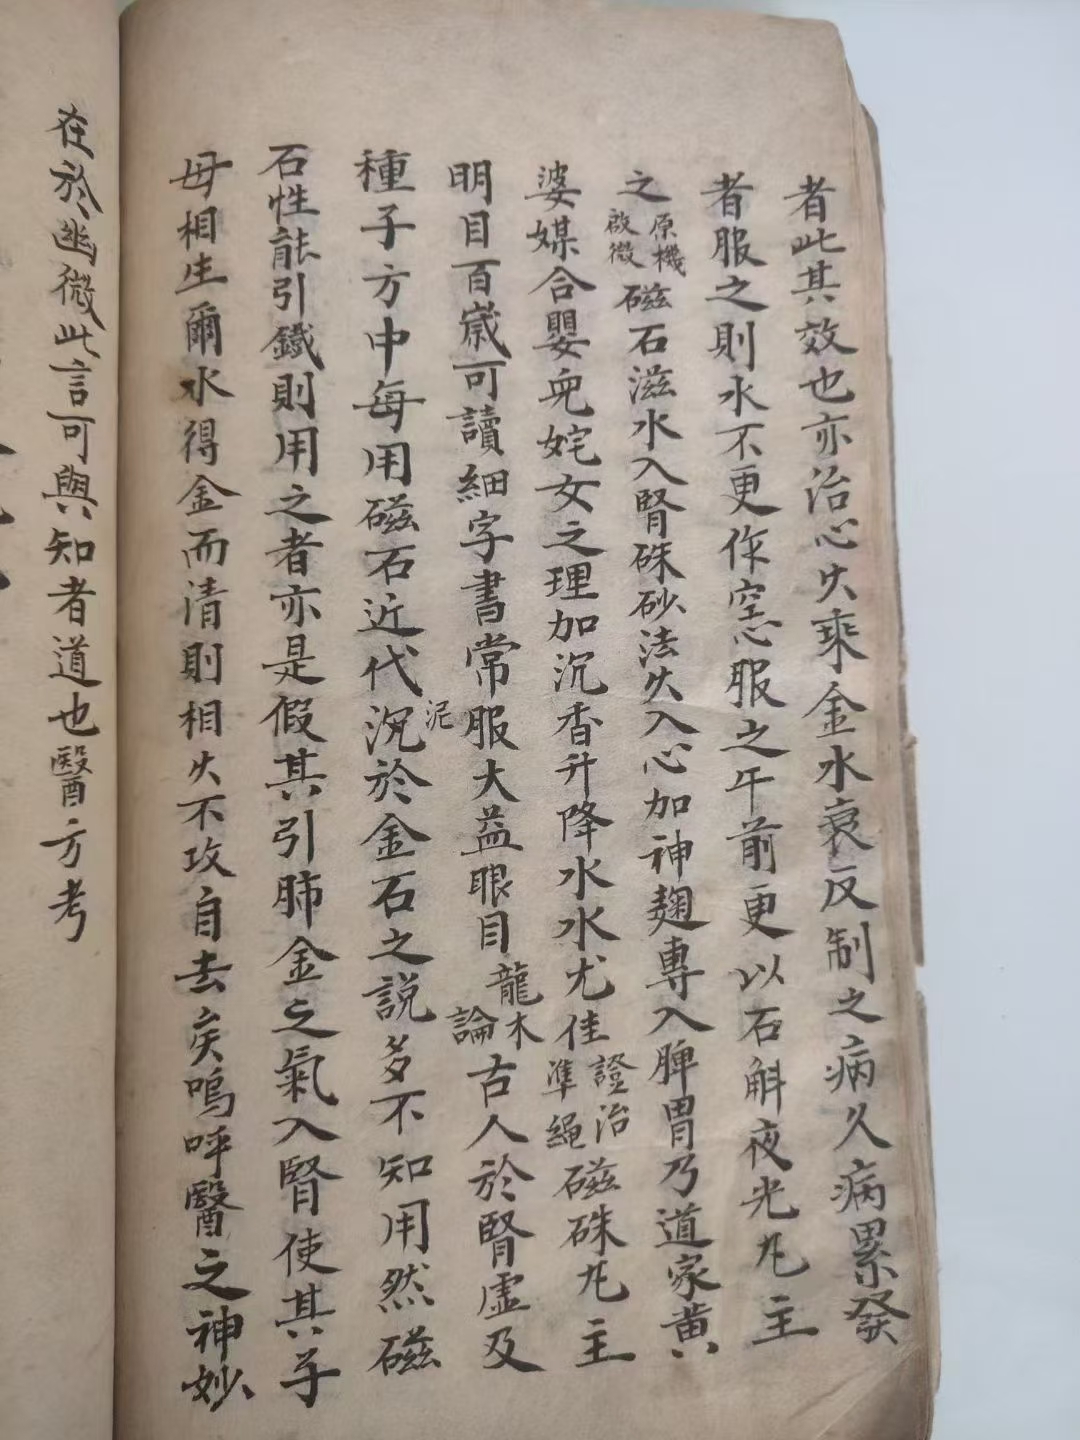 者此其效也亦治心火乘金水衰反制之病久病累發
者服之則水不更作空心服之午前更以石斛夜光丸主
之原機啟微磁石滋水入腎硃砂法火入心加神麯專入脾胃乃道家黄
婆媒合嬰兒姹女之理加沉香升降水水尤佳證治準繩磁硃丸主
明目百嵗可讀細字書常服大益眼目龍木論古人於腎虛及
種子方中每用磁石近代沉泥於金石之說多不知用然磁
石性能引鐵則用之者亦是假其引肺金之氣入腎使其子
母相生爾水得金而清則相火不攻自去矣嗚呼醫之神妙
在於幽微此言可與知者道也醫方考